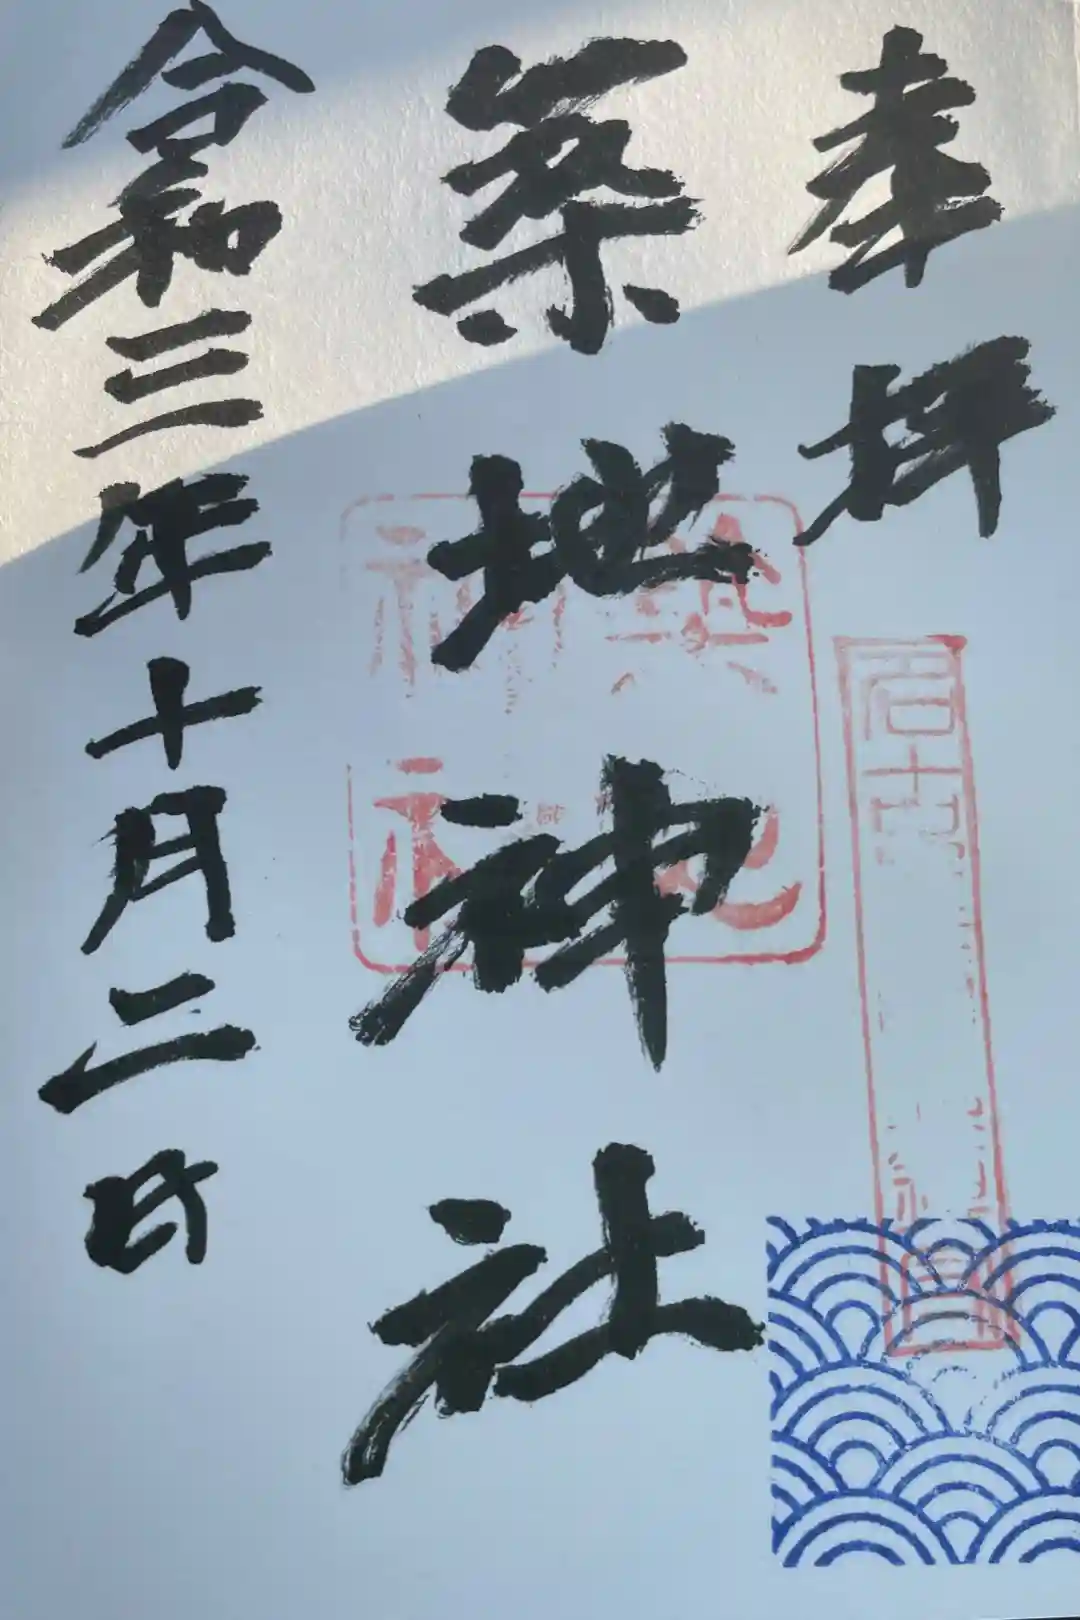 奉拝
築地神社
令和三年十月二日
築地
神社